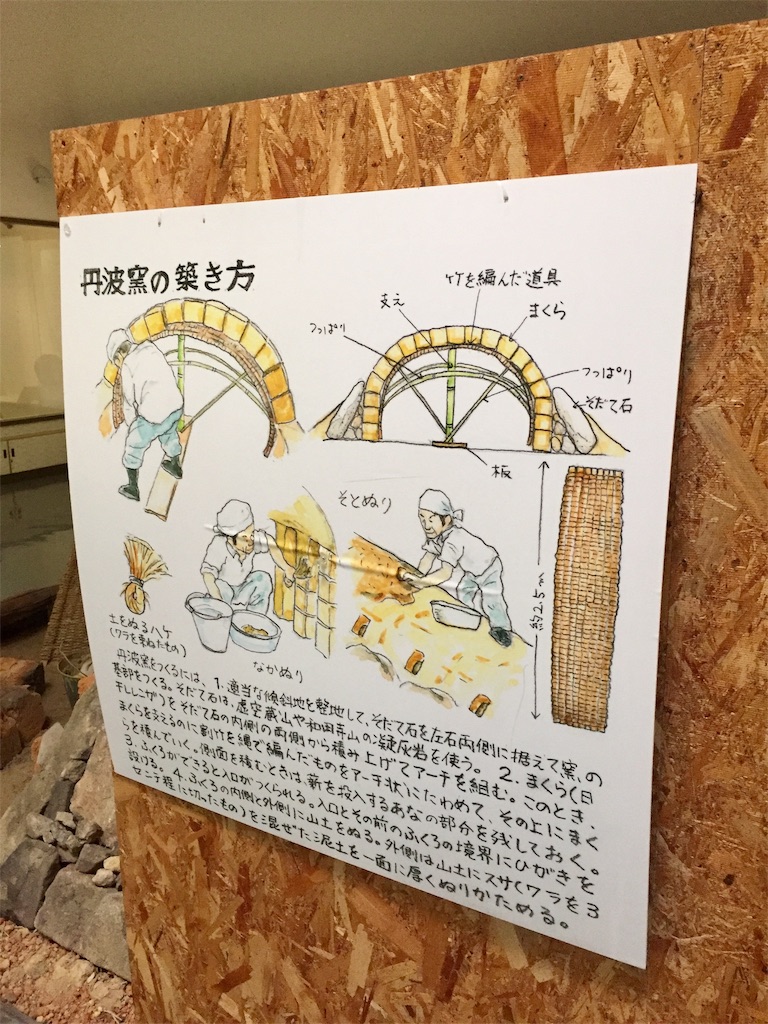 丹波窯の築き方
竹を編んだ道具
支え
まくら
つっぱり
つっぱり
そだて石
板
そとぬり
約2.5m
土をぬるハケ
(ワラを束ねたもの)
なかぬり
丹波窯をつくるには、1.適当な傾斜地を整地して、そだて石を左右両側に据えて窯の
基部をつくる。そだて石は、虚空蔵山や和田寺山の凝灰岩を使う。 2.まくら(日
干しレンガ)をそだて石の内側の両側から積み上げてアーチを組む。このとき
まくらを支えるのに割竹を縄で編んだものをアーチ状にたわめて、その上にまく
らを積んでいく。側面を積むときは、薪を投入するあなの部分を残しておく。
3.ふくろができると入口がつくられる。入口とその前のふくろの境界にひがきを
設ける。4.ふくろの内側と外側に山土をぬる。外側は山土にスサ(ワラを3
センチ程に切ったもの)を混ぜた泥土を一面に厚くぬりかためる。